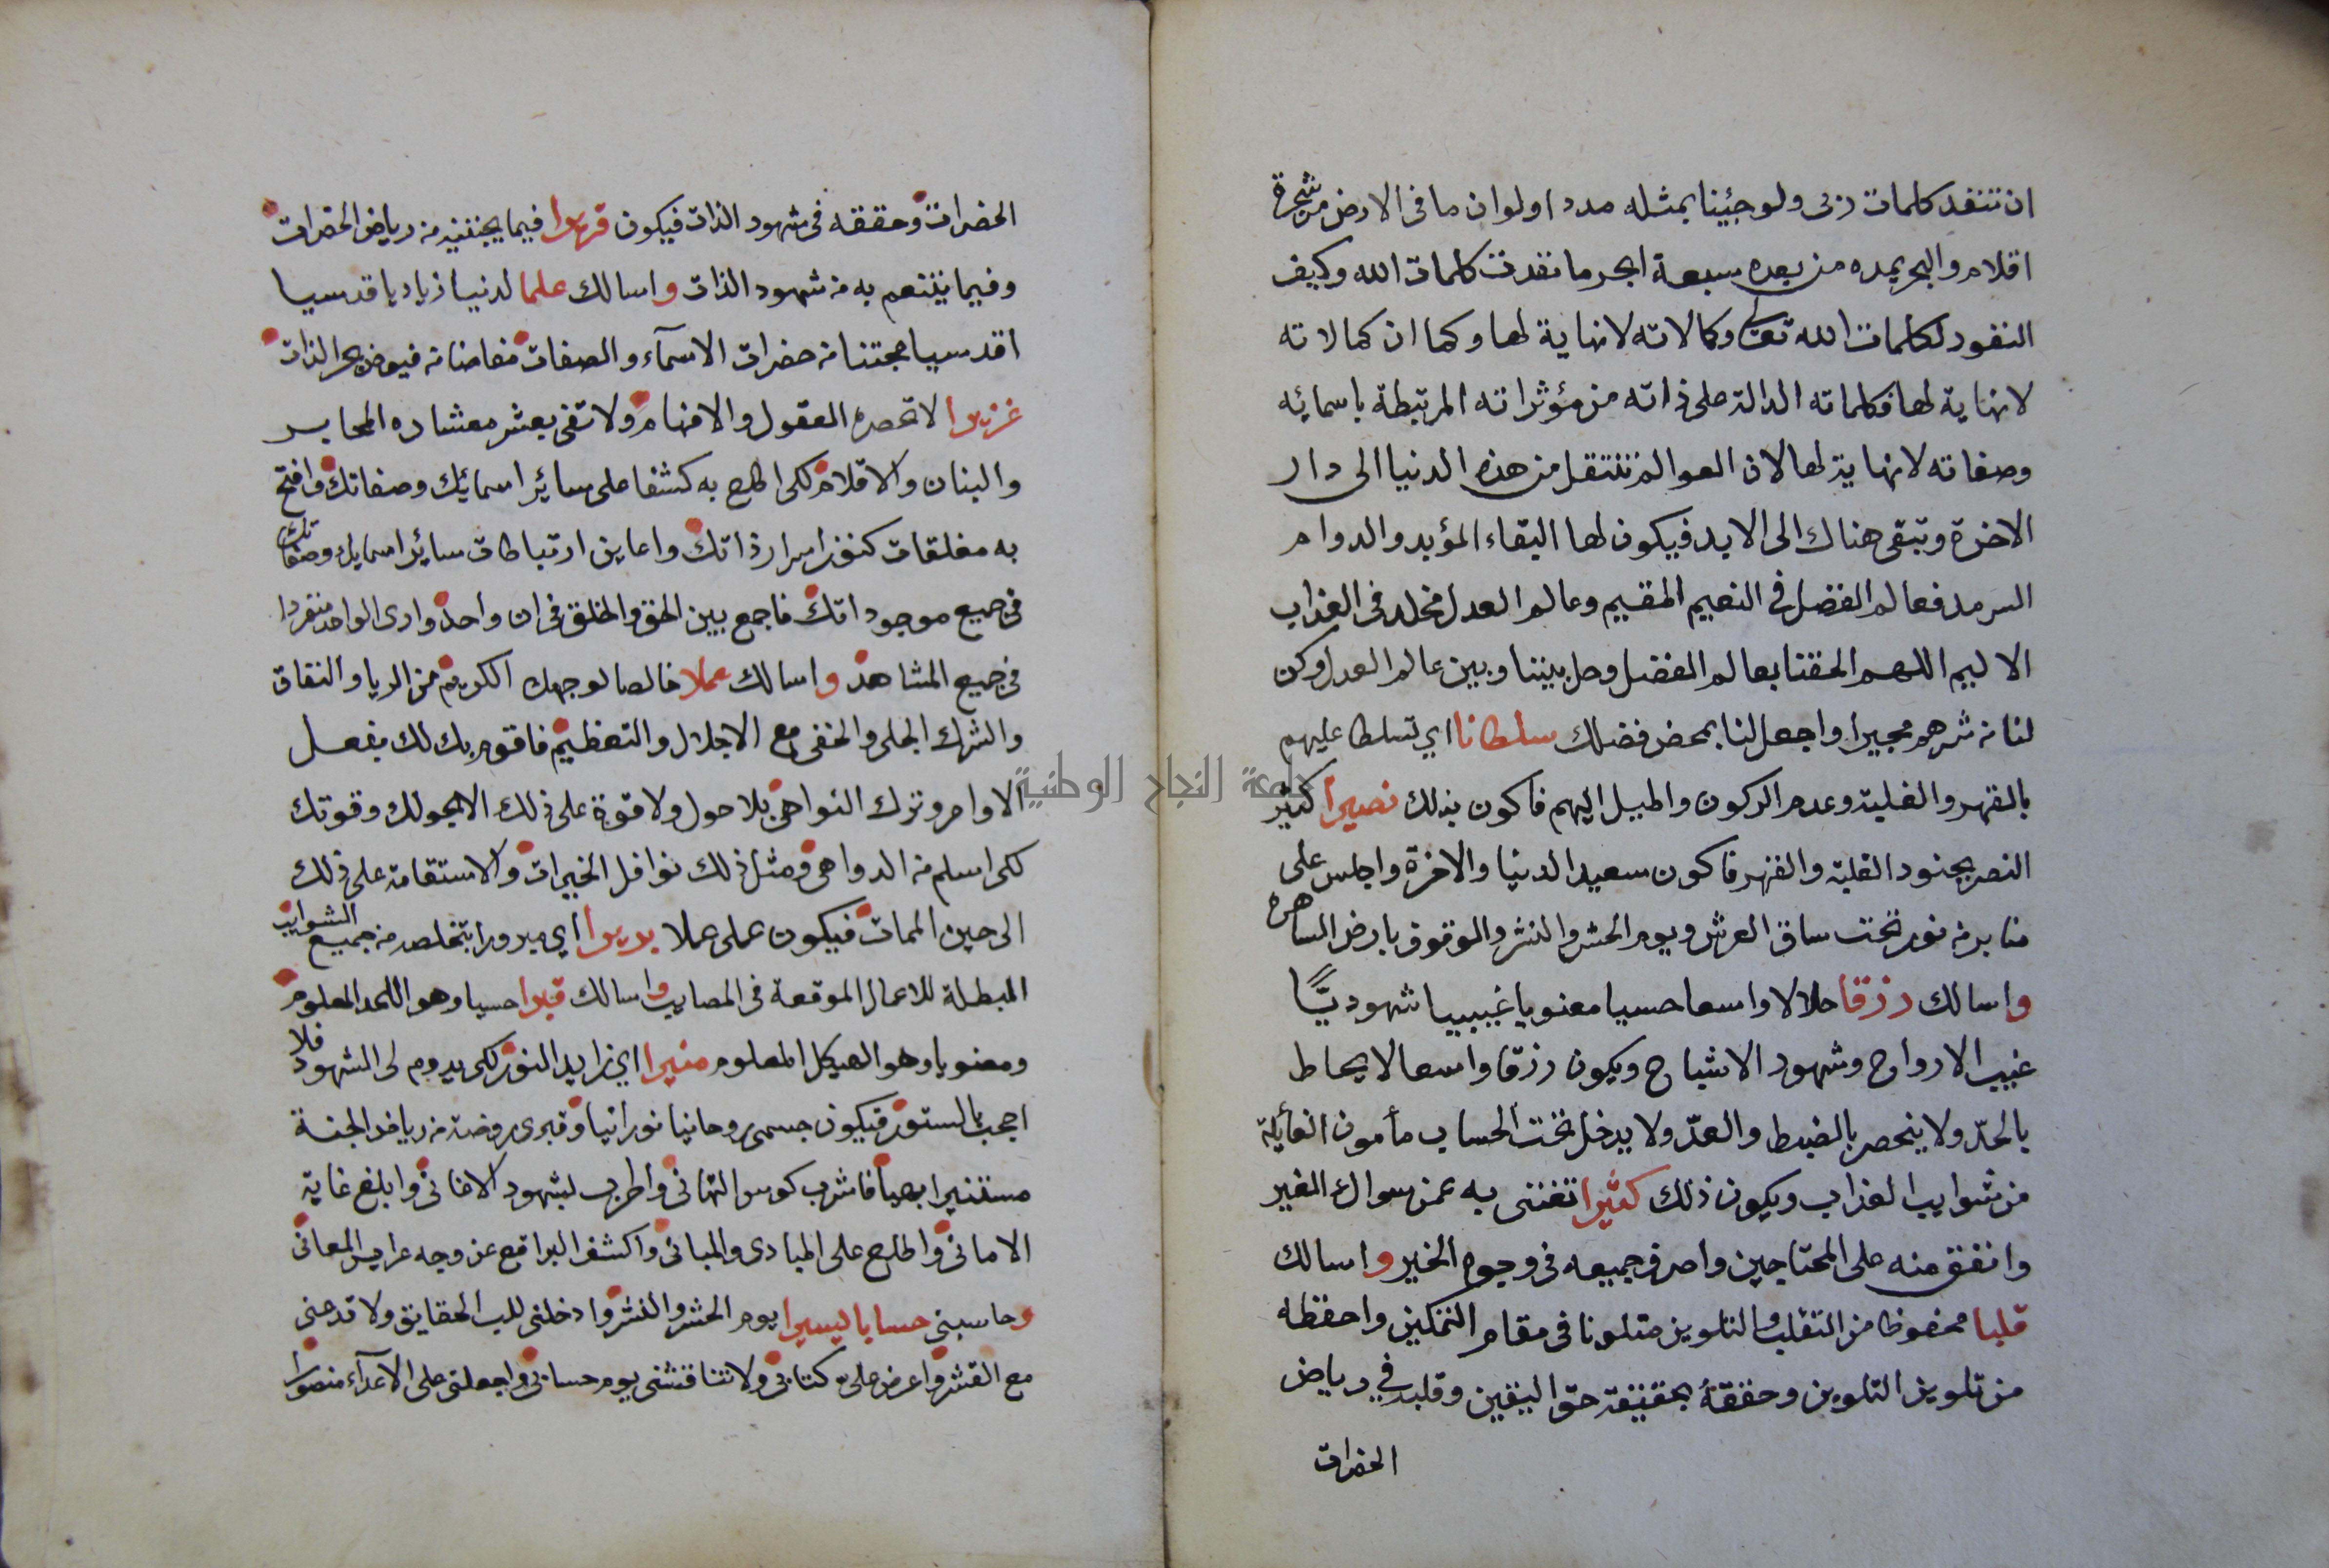 ان تنفد كلمات ربى ولو جئينا بمثله مددا ولو ان ما فى الارض من شجرة
اقلام والبحر يمده من بعده سبعة ابحر ما نفدت كلمات الله وكيف
النفود لكلمات الله تعالى وكالاته لانهاية لها وكما ان كمالاته
لانهاية لها فكلماته الدالة على ذاته من مؤثراته المرتبطة باسمائه
وصفاته لانهاية لها لان العوالم تنتقل من هذه الدنيا الى دار
الاخرة وتبقى هناك الى الابد فيكون لها البقاء المؤيد والدوام
السرمد فعالم الفضل فى النعيم المقيم وعالم العدل مخلد فى العذاب
الاليم اللهم الحقنا بعالم الفضل وحل بيننا وبين عالم العدل وكن
لنا من شرهم مجيرا واجعل لنا بمحض فضلك سلطانا اي تسلطا عليهم
بالقهر والغلبة وعدم الركون والميل اليهم فاكون بذلك نصيرا كثير
النصر بجنود الغلبة والقهر فاكون سعيد الدنيا والاخرة واجلس على
منابر من نور تحت ساق العرش ويوم الحشر والنشر والوقوف بارض الساهرة
واسالك رزقا حلالا واسعا حسيا معنويا غيبيا شهوديًّا
غيب الارواح وشهود الاشباح ويكون رزقا واسعا لا يحاط
بالحدّ ولا ينحصر بالضبط والعدّ ولا يدخل تحت الحساب مأمون الغأيلة
من شوايب العذاب ويكون ذلك كثيرا تغننى به عن سوال الغير
وانفق منه على المحتاجين واصرف جميعه فى وجوه الخير واسالك
قلبا محفوظا من التقلب والتلوين متلونا فى مقام التمكين واحفظه
من تلوين التلوين وحققهُ بحقيقة حق اليقين وقلبه فى رياض
الحضرات
الحضرات وحققه فى شهود الذات فيكون قريرا فيما يجتنيه من رياض الحضرات
وفيما يتنعم به من شهود الذات واسالك علما لدنيا زياديا قدسيا
اقدسيا مجتنا من حضرات الاسمآء والصفات مفاضا من فيوض بحر الذات
غزيرا لا تحصره العقول والافهام ولا تفى بعشر معشاره المحابر
والبنان والاقلام لكى اطلع به كشفا على سائر اسمائك وصفاتك وافتح
به مغلقات كنوز اسرار ذاتك واعاين ارتباطات سائر اسمايك وصفاتك
فى جميع موجوداتك فاجمع بين الحق والخلق فى ان واحد وارى الواحد منفردا
فى جميع المشاهد واسالك عملا خالصا لوجهك الكريم من الريا والنفاق
والشرك الجلى والخفى مع الاجلال والتعظيم فاقوم بك لك بفعل
الاوامر وترك النواهى بلا حول ولا قوة على ذلك الا بحولك وقوتك
لكى اسلم من الدواهى ومثل ذلك نوافل الخيرات والاستقامة على ذلك
الى حين الممات فيكون عملى عملا بريرا اي مبرورا بتخلصه من جميع الشوايب
المبطلة للاعمال الموقعة فى المصايب واسالك قبرا حسيا وهو اللحد المعلوم
ومعنويا وهو الهيكل المعلوم منيرا اي زايد النور لكى يدوم لى الشهود فلا
احجب بالستور فيكون جسمى روحانيا نورانيا وقبرى روضة من رياض الجنة
مستنيرا بهيا فاشرب كوس التهانى واطرب لشهود الاغانى وابلغ غاية
الامانى واطلع على المبادى والمبانى واكشف البراقع عن وجه عرايس المعانى
وحاسبنى حسابا يسيرا يوم الحشر والنشر وادخلنى للب الحقايق ولا تدعنى
مع القشر واعرض على كتابى ولا تناقشنى يوم حسابى واجعلنى على الاعدآء منصورا
جامعة النجاح الوطنية